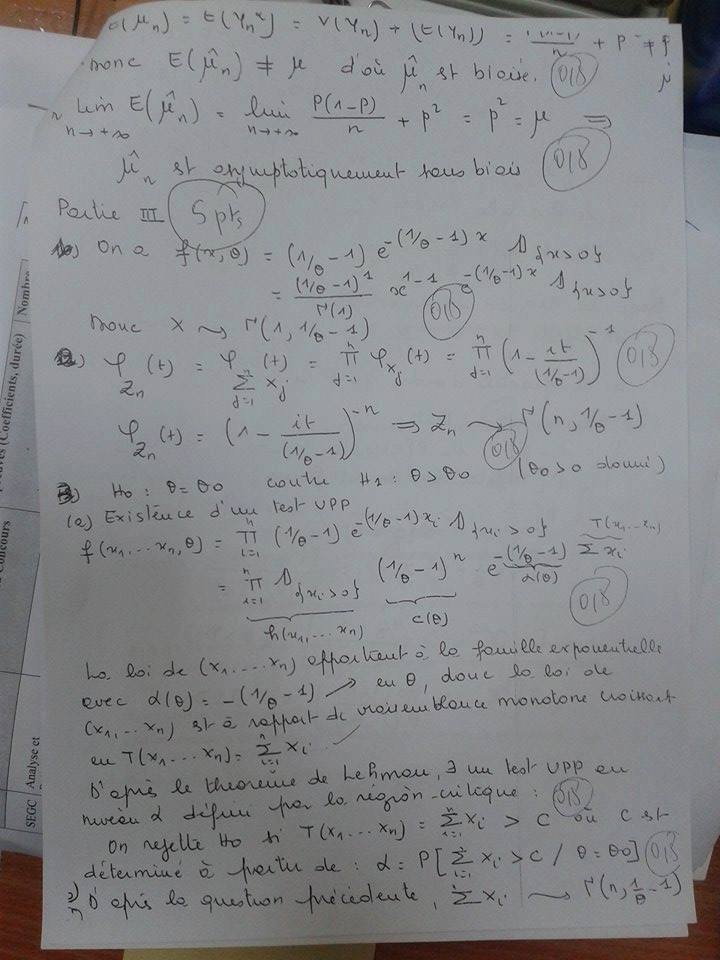 E(μ̂n) = E(Yn²) = V(Yn) + (E(Yn))² = p(1-p)/n + p² ≠ p²
donc E(μ̂n) ≠ μ d'où μ̂n st biaisé. 0,5 μ
lim n→+∞ E(μ̂n) = lim n→+∞ P(1-P)/n + p² = p² = μ ⇒
μ̂n st asymptotiquement sans biais 0,5
Partie III 5 pts
1) On a f(x,θ) = (1/θ -1) e^-(1/θ -1)x 1{x>0}
= (1/θ -1)^1 / Γ(1) x^1-1 e^-(1/θ -1)x 1{x>0}
donc X ⇝ Γ(1, 1/θ -1) 0,5
2) φ_Zn(t) = φ_Σ(j=1..n) Xj (t) = Π(j=1..n) φ_Xj(t) = Π(j=1..n) (1 - it/(1/θ-1))^-1 0,5
φ_Zn(t) = (1 - it/(1/θ-1))^-n ⇒ Zn ⇝ Γ(n, 1/θ -1) 0,5
3) H0 : θ = θ0 contre H1 : θ > θ0 (θ0 > 0 donné)
(a) Existence d'un test UPP
f(x1...xn, θ) = Π(i=1..n) (1/θ -1) e^-(1/θ -1)xi 1{xi>0} T(x1...xn)
= Π(i=1..n) 1{xi>0} (1/θ -1)^n . e^-(1/θ -1) Σxi
h(x1,...xn) c(θ) α(θ) 0,5
La loi de (x1....xn) appartient à la famille exponentielle
avec α(θ) = -(1/θ -1) ↗ en θ, donc la loi de
(x1,..xn) st à rapport de vraisemblance monotone croissant
en T(x1...xn) = Σ(i=1..n) xi
D'après le theorème de Lehman, ∃ un test UPP au
niveau α défini par la région critique : 0,5
On rejette H0 si T(x1...xn) = Σ(i=1..n) xi > C où C st
déterminé à partir de : α = P[Σ xi > c / θ = θ0] 0,5
D'après la question précédente, Σ xi ⇝ Γ(n, 1/θ -1)
Nombre
(Coefficients, durée)
Concours
Analyse et
SEGC